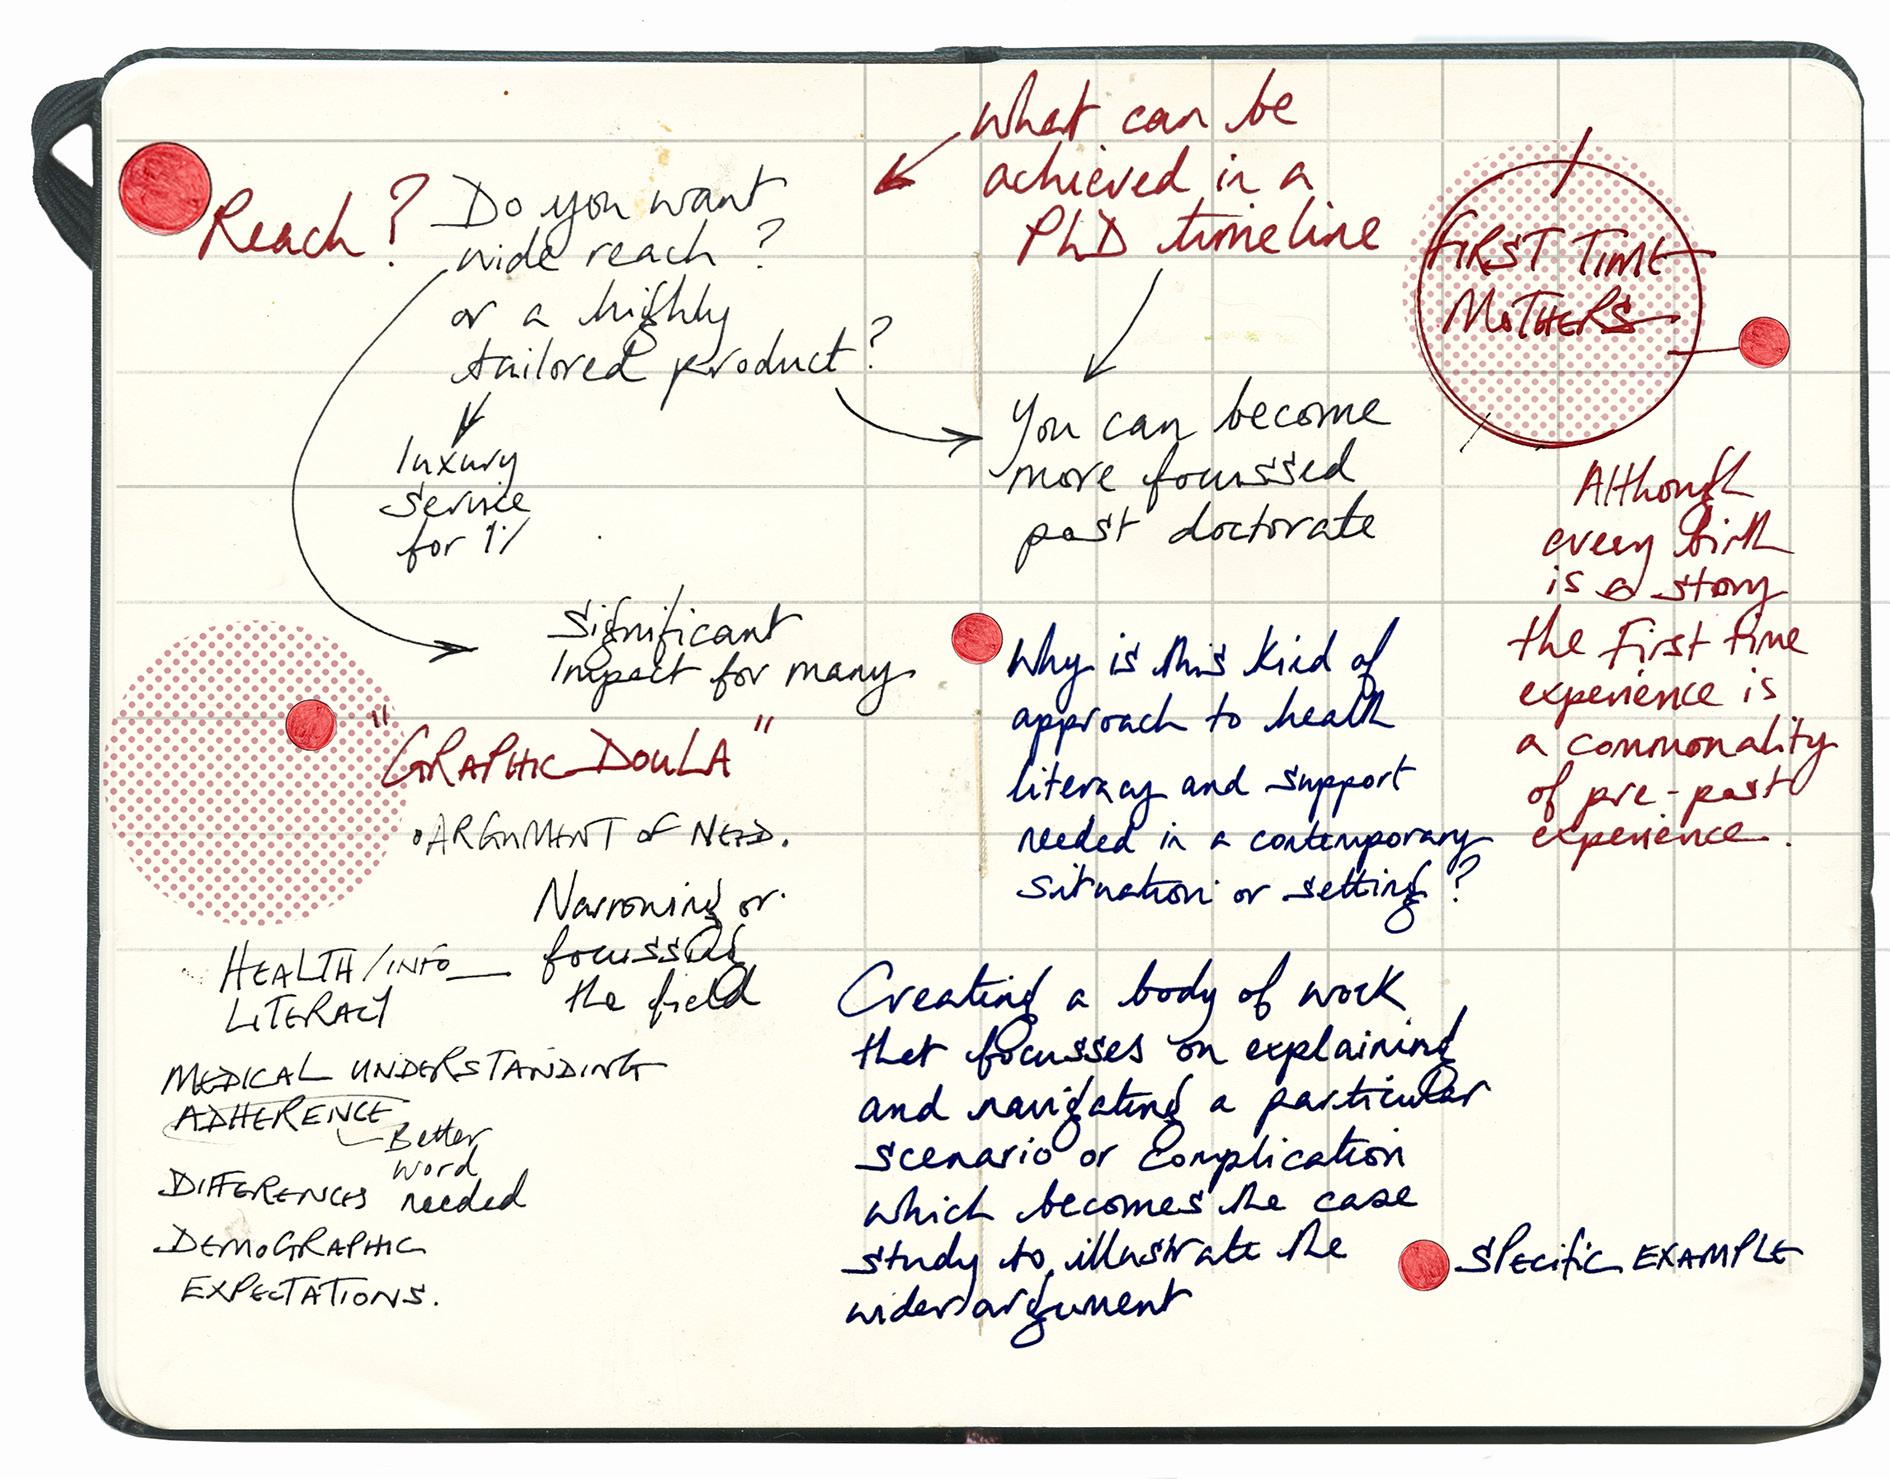 Reach?
Do you want
wide reach?
or a highly
tailored product?
luxury
service
for 1%
Significant
Impact for many
"GRAPHIC DOULA"
• ARGUMENT OF NEED.
Narrowing or
focussing
the field
HEALTH/INFO
LITERACY
MEDICAL UNDERSTANDING
ADHERENCE
Better
word
needed
DIFFERENCES
DEMOGRAPHIC
EXPECTATIONS.
What can be
achieved in a
PhD timeline
You can become
more focussed
post doctorate
Why is this kind of
approach to health
literacy and support
needed in a contemporary
situation or setting?
Creating a body of work
that focusses on explaining
and navigating a particular
scenario or complication
which becomes the case
study to illustrate the
wider argument
FIRST TIME
MOTHERS
Although
every birth
is a story
the first time
experience is
a commonality
of pre-post
experience.
SPECIFIC EXAMPLE